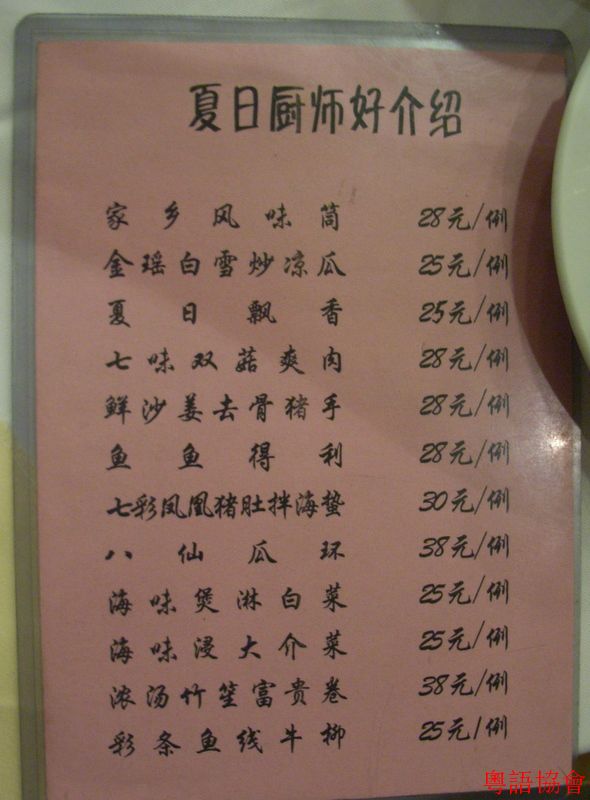 夏日厨师好介绍
家乡风味筒 28元/例
金瑶白雪炒凉瓜 25元/例
夏日飘香 25元/例
七味双菇爽肉 28元/例
鲜沙姜去骨猪手 28元/例
鱼鱼得利 28元/例
七彩凤凰猪肚拌海蛰 30元/例
八仙瓜环 38元/例
海味煲淋白菜 25元/例
海味浸大介菜 25元/例
浓汤竹笙富贵卷 38元/例
彩条鱼线牛柳 25元/例
粤語協會